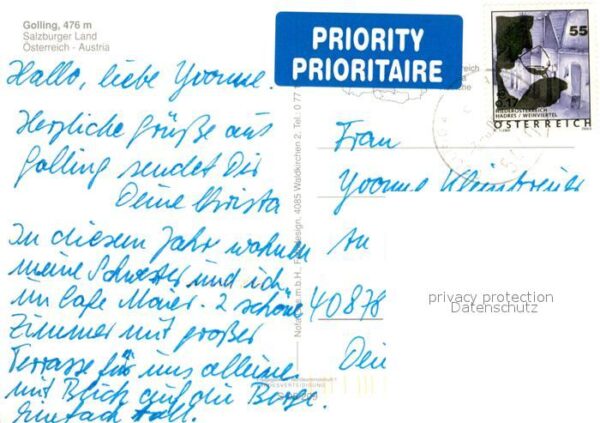 Golling, 476 m
Salzburger Land
Österreich - Austria
Hallo, liebe Yvonne.
Herzliche Grüße aus
Golling sendet Dir
Deine Christa
In diesem Jahr wohnen
meine Schwester und ich
im Cafe Maier. 2 schöne
Zimmer mit großer
Terrasse für uns alleine
mit Blick auf die Berge.
Einfach toll.
PRIORITY
PRIORITAIRE
55
0.17
NIEDERÖSTERREICH
HADRES / WEINVIERTEL
ÖSTERREICH
4085 Waldkirchen 2, Tel.: 0 77
Frau
Yvonne
An
40878
privacy protection
Datenschutz